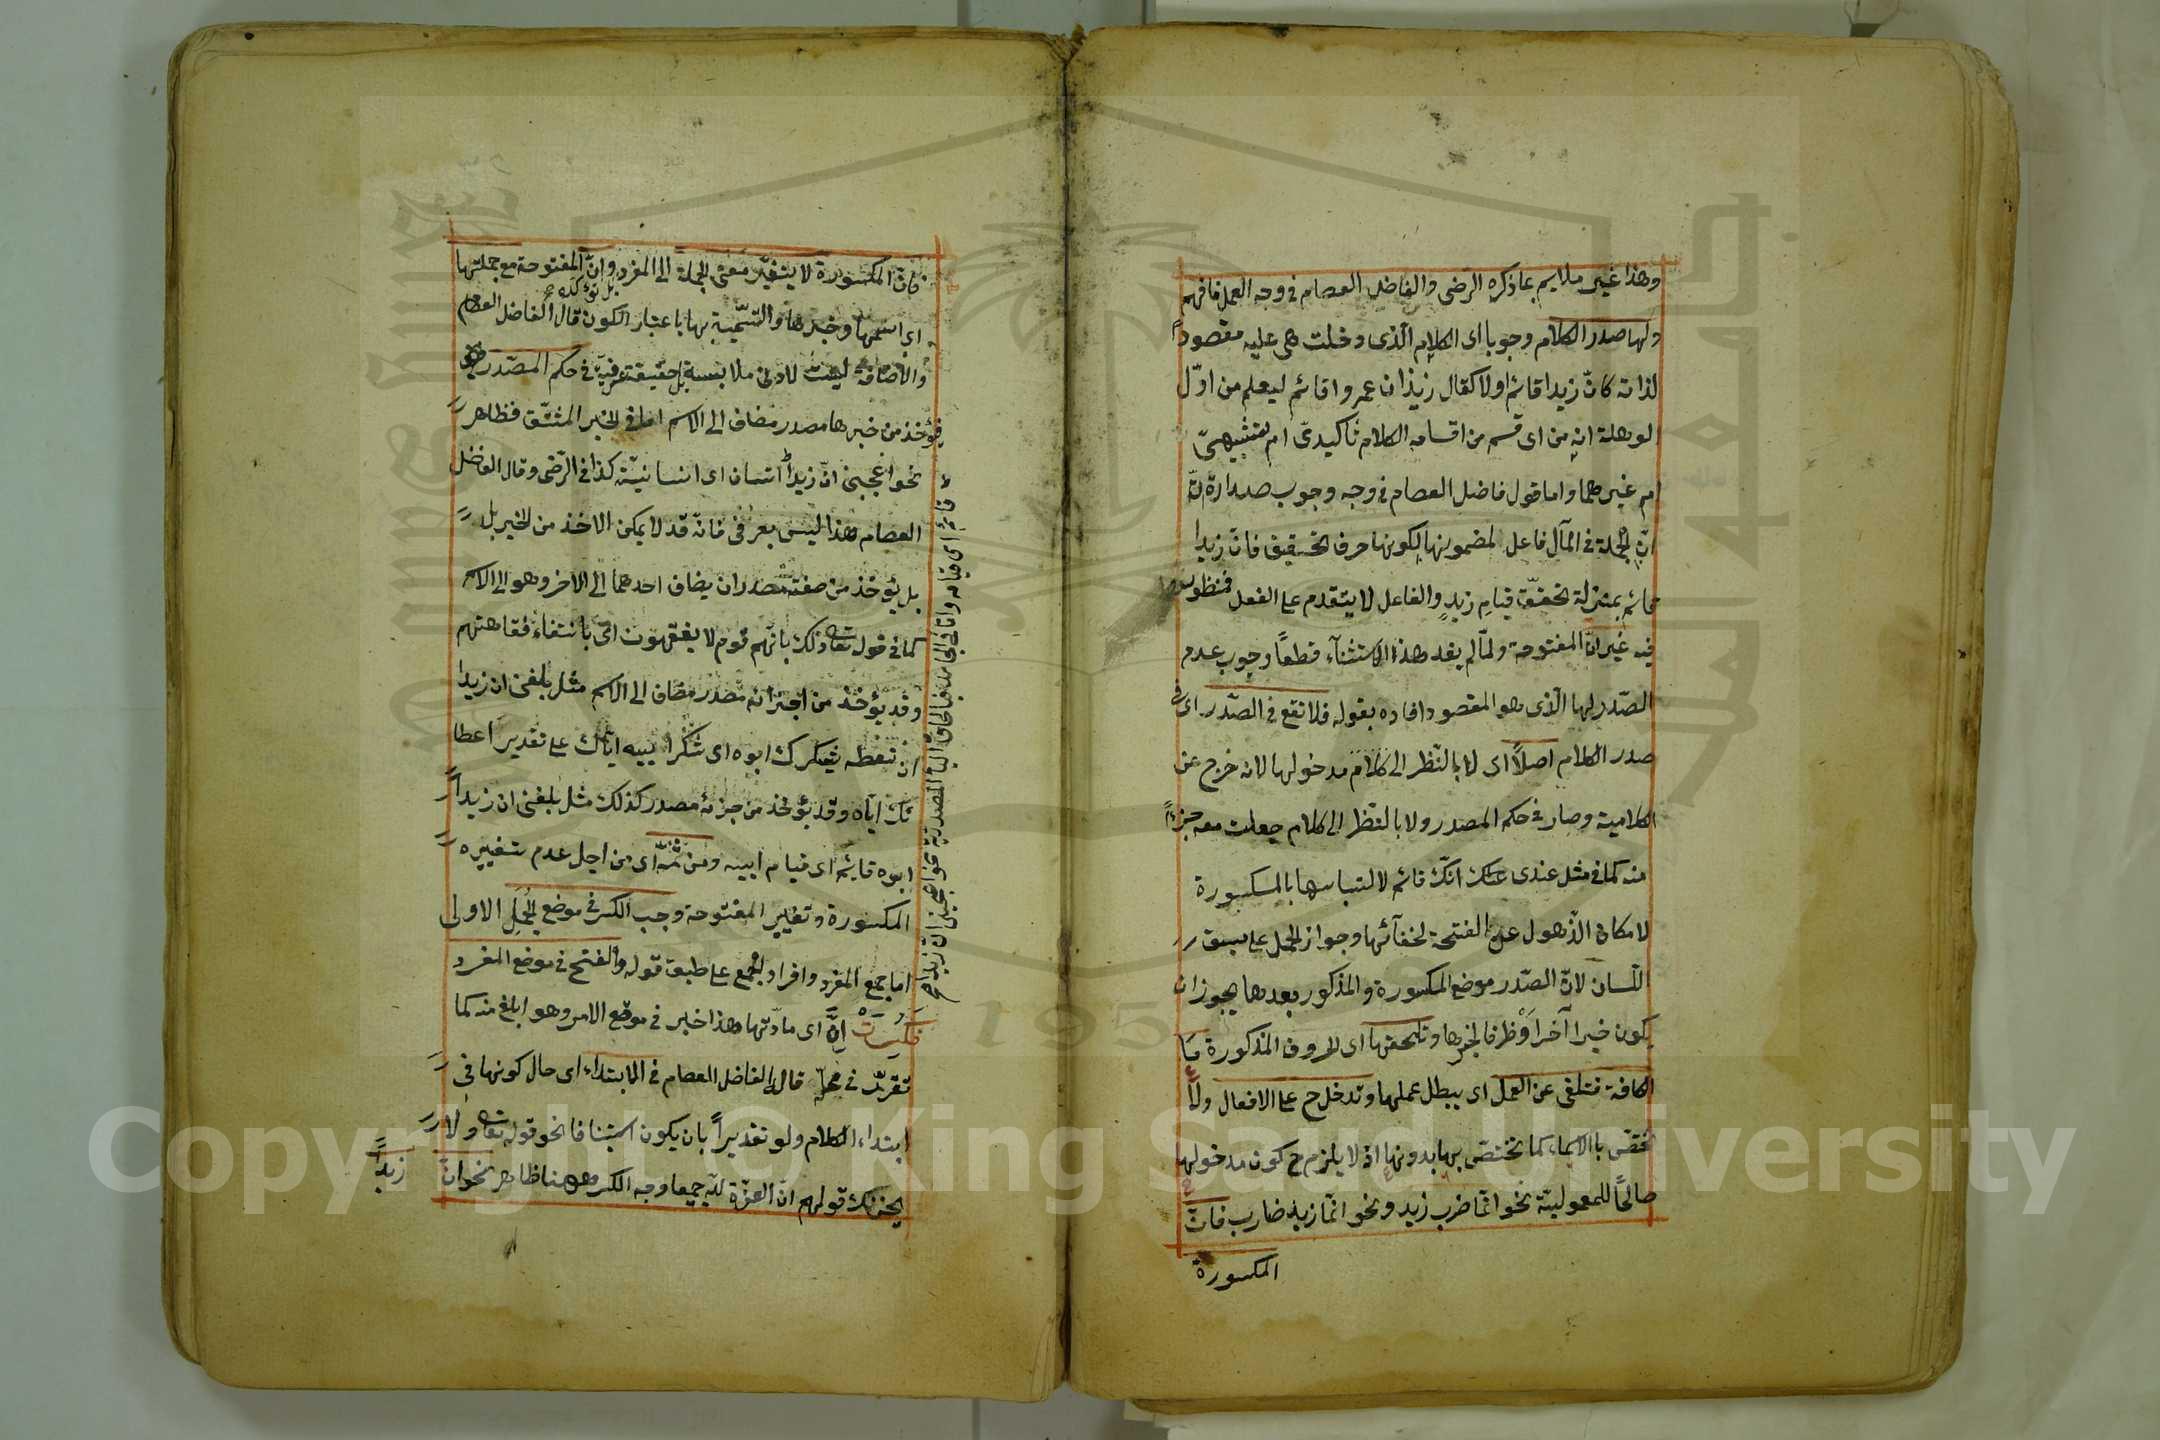 وهذا غير ملايم بما ذكره الرّضى والفاضل العصام فى وجه العمل فافهم
ولها صدر الكلام وجوبا اى الكلام الّذى دخلت هى عليه مقصوداً
لذاته كانّ زيدا قائم اولا كقال زيد ان عمروا قائم ليعلم من اوّل
الوهلة انه من اى قسم من اقسامه الكلام تأكيدىّ ام تشبيهىّ
ام غيرهما واما قول فاضل العصام فى وجه وجوب صدارة انّ
انّ الجملة فى المآل فاعل لمضمونها لكونها حرف التحقيق فانّ زيدا
قائم بمنزلة تحقّق قيام زيدٍ والفاعل لا يتقدم على الفعل فمنظور
فيه غير انّ المفتوحة ولمّا لم يفد هذا الاستثناء قطعاً وجوب عدم
الصّدر لها الّذى هو المقصود افاده بقوله فلا تقع فى الصّدر اى فى
صدر الكلام اصلاً اى لا بالنّظر الى كلام مدخولها لانه خرج عن
الكلامية وصار فى حكم المصدر ولا بالنّظر الى كلام جعلت معه جزءً
منه كما فى مثل عندى انّك قائم لالتباسها بالمكسورة
لامكان الذّهول عن الفتحة لخفآئها وجواز الحمل على سبق
اللّسان لانّ الصّدر موضع المكسورة والمذكور بعدها يجوز ان
يكون خبرا آخر اَوْ ظرفا لخبرها وتلحقها اى الحروف المذكورة مَا
الكافة فتلغى عن العمل اى يبطل عملها وتدخل ح على الافعال ولا
تختصّ بالاسماء كما تختصّ بها بدونها اذ لا يلزم ح كون مدخولها
صالحًا للمعموليّة نحو انّما ضرب زيد ونحو انّما زيد ضارب فانّ
المكسورة
فانّ المكسورة لا يتغيّر معنى الجملة الى المفرد وانّ المفتوحة مع جملتها
بل تؤكده
اى اسمها وخبرها والتّسمية بها باعتبار الكون قال الفاضل العصام
والاضافة ليست لادنى ملابسة بل حقيقة عرفيّة فى حكم المصدر
فيؤخذ من خبرها مصدر مضاف الى الاسم اما فى الخبر المشتّق فظاهر
نحو اعجبنى انّ زيداً انسان اى انسانيّته كذا فى الرّضى وقال الفاضل
العصام هذا ليس بعرفى فانّه قد لا يمكن الاخذ من الخبر بل
بل يؤخذ من صفته مصدر ان يضاف احدهما الى الاخر وهو الى الاسم
كما فى قوله تعا ذلك بانّهم قوم لا يفقهون اى بانتفاء فقاهتهم
وقد يؤخذ من اجزائه مصدر مضاف الى الاسم مثل بلغنى ان زيدا
ان تعطه يشكرك ابوه اى شكر ابيه ايّاك على تقدير اعطا
ئك ايّاه وقد يؤخذ من جزئه مصدر كذلك مثل بلغنى ان زيداً
ابوه قائم اى قيام ابيه ومن ثَمّه اى من اجل عدم تغييره
المكسورة وتغيير المفتوحة وجب الكسر فى موضع الجُمَل الاولى
اما جمع المفرد وافراد الجمع على طبق قوله والفتح فى موضع المفرد
فكُسِرَتْ اِنَّ اى مادّتها وهذا خبر فى موقع الامر وهو ابلغ منه كما
تقرّر فى محلّه قال الفاضل العصام فى الابتداء اى حال كونها فى
ابتداء الكلام ولو تقديراً بان يكون استينافا نحو قوله تعا ولا
يحزنك قولهم انّ العزّة للّه جميعا وجه الكسر ههنا ظاهر نحو انّ
زيداً
قائم اى قيامه وامّا فى الجامد فبالحاق الياء المصدرية نحو اعجبنى ان زيدا